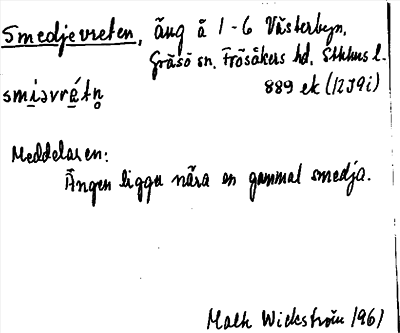 Smedjevreten, äng å 1-6 Västerbyn,
Gräsö sn. Frösåkers hd. Sthlms l.
889 ek (12I9i)
smiəvrétn̥
Meddelaren:
Ängen ligger nära en gammal smedja.
Math Wickström 1961